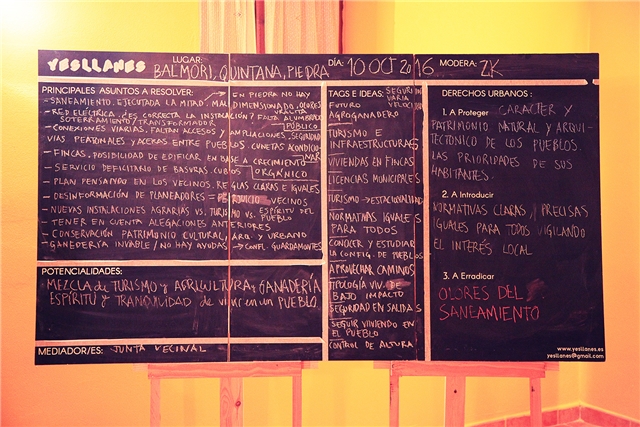 YESLLANES
LUGAR: BALMORI, QUINTANA, PIEDRA
DÍA: 10 OCT 2016
MODERA: ZK
PRINCIPALES ASUNTOS A RESOLVER:
EN PIEDRA NO HAY
- SANEAMIENTO. EJECUTADA LA MITAD. MAL DIMENSIONADO. OLORES
URALITA
- RED ELÉCTRICA. ¿ES CORRECTA LA INSTALACIÓN? FALTA ALUMBRADO
SOTERRAMIENTO/TRANSFORMADOR
PÚBLICO
- CONEXIONES VIARIAS. FALTAN ACCESOS Y AMPLIACIONES, SEGURIDAD
VÍAS PEATONALES Y ACERAS ENTRE PUEBLOS CUNETAS ACONDICIO-
NAR
- FINCAS. POSIBILIDAD DE EDIFICAR EN BASE A CRECIMIENTO
ORGÁNICO
- SERVICIO DEFICITARIO DE BASURAS. CUBOS
- PLAN PENSANDO EN LOS VECINOS. REGLAS CLARAS E IGUALES
- DESINFORMACIÓN DE PLANEADORES VECINOS
- NUEVAS INSTALACIONES AGRARIAS VS. TURISMO VS. ESPÍRITU DEL
PUEBLO
- TENER EN CUENTA ALEGACIONES ANTERIORES
- CONSERVACIÓN PATRIMONIO CULTURAL, ARQ. Y URBANO
GANADERÍA INVIABLE / NO HAY AYUDAS → CONFL. GUARDAMONTES
POTENCIALIDADES:
MEZCLA DE TURISMO Y AGRICULTURA & GANADERÍA
ESPÍRITU Y TRANQUILIDAD DE VIVIR EN UN PUEBLO.
MEDIADOR/ES: JUNTA VECINAL
TAGS E IDEAS:
SEGURIDAD
VIARIA
VELOCIDAD
FUTURO
AGROGANADERO
TURISMO E
INFRAESTRUCTURAS
VIVIENDAS EN FINCAS
LICENCIAS MUNICIPALES
TURISMO - ESTACIONALIDAD
NORMATIVAS IGUALES
PARA TODOS
CONOCER Y ESTUDIAR
LA CONFIG. DE PUEBLOS
APROVECHAR CAMINOS
TIPOLOGÍA VIV. DE
BAJO IMPACTO
SEGURIDAD EN SALIDAS
SEGUIR VIVIENDO EN
EL PUEBLO
CONTROL DE ALTURA
DERECHOS URBANOS:
1. A Proteger CARÁCTER Y
PATRIMONIO NATURAL Y ARQUI-
TECTÓNICO DE LOS PUEBLOS.
LAS PRIORIDADES DE SUS
HABITANTES.
2. A Introducir
NORMATIVAS CLARAS, PRECISAS
IGUALES PARA TODOS VIGILANDO
EL INTERÉS LOCAL
3. A Erradicar
OLORES DEL
SANEAMIENTO
www.yesllanes.es
yesllanes@gmail.com